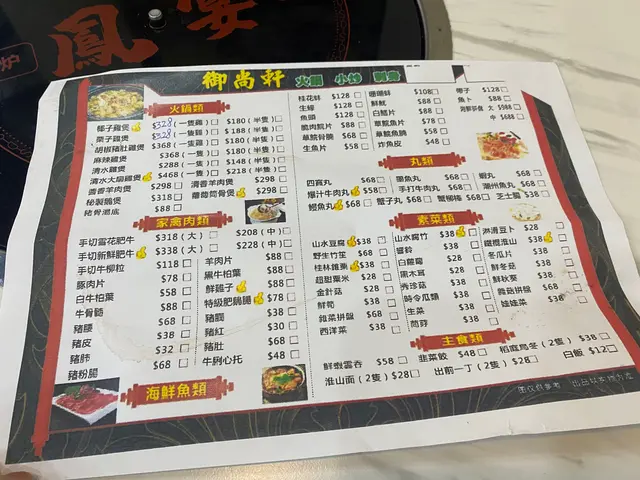 鳳
宴
炉
御尚軒 火鍋 小炒
火鍋類
椰子雞煲 $328 (一隻雞) $180 (半隻)
栗子雞煲 $328 (一隻) $180 (半隻)
胡椒豬肚雞煲 $368 (一隻)
麻辣雞煲 $368 (一隻)
清水雞煲 $288 (一隻) $148 (半隻)
清水大閘雞煲 $468 (一隻)
清香羊肉煲 $298
蘿蔔筒骨煲 $298
秘製鵝煲 $318
豬骨湯底 $88
家禽肉類
手切雪花肥牛 $318 (大) $208 (中)
手切新鮮肥牛 $338 (大) $228 (中)
手切牛柳粒 $118
豚肉片 $58
白牛柏葉 $88
牛骨髓 $68
豬腰 $38
豬皮 $32
豬肺 $38
豬粉腸 $68
羊肉片 $88
黑牛柏葉 $88
鮮雞子 $88
特級肥鵝腸 $78
豬膶 $38
豬紅 $30
豬肚 $68
牛脷心托 $48
海鮮魚類
桂花蚌 $128
生蠔 $128
魚頭 $128
脆肉鯇片 $88
草鯇骨腩 $68
生魚片 $58
珊瑚蚌 $108
鮮魷 $88
白鱔片 $88
草鯇魚片 $78
草鯇魚腩
炸魚皮 $48
帶子 $128
魚卜 $88
中 $688
丸類
四寶丸 $58
爆汁牛肉丸
鱔魚丸 $58
墨魚丸 $68
手打牛肉丸
蟹子丸 $68
蟹柳棒 $38
蝦丸 $68
潮州魚丸
芝士腸 $38
素菜類
山水豆腐 $38
野生竹笙 $68
桂林雞棗 $38
超甜粟米 $28
金針菇 $28
鮮筍 $38
雜菜拼盤 $68
西洋菜 $38
山水腐竹 $38
響鈴 $38
白蘿蔔 $28
黑木耳 $28
秀珍菇 $38
時令瓜類 $38
生菜 $28
茼蒿 $38
淋滑豆卜 $28
鐵棍淮山 $38
冬瓜片 $28
鮮冬菇 $38
鮮秋葵 $38
雜菇拼盤 $68
娃娃菜 $38
主食類
鮮蝦雲吞 $58
韭菜餃 $48
稻庭烏冬 (2隻) $38
淮山麵 (2隻) $28
出前一丁 (2隻) $28
白飯 $12